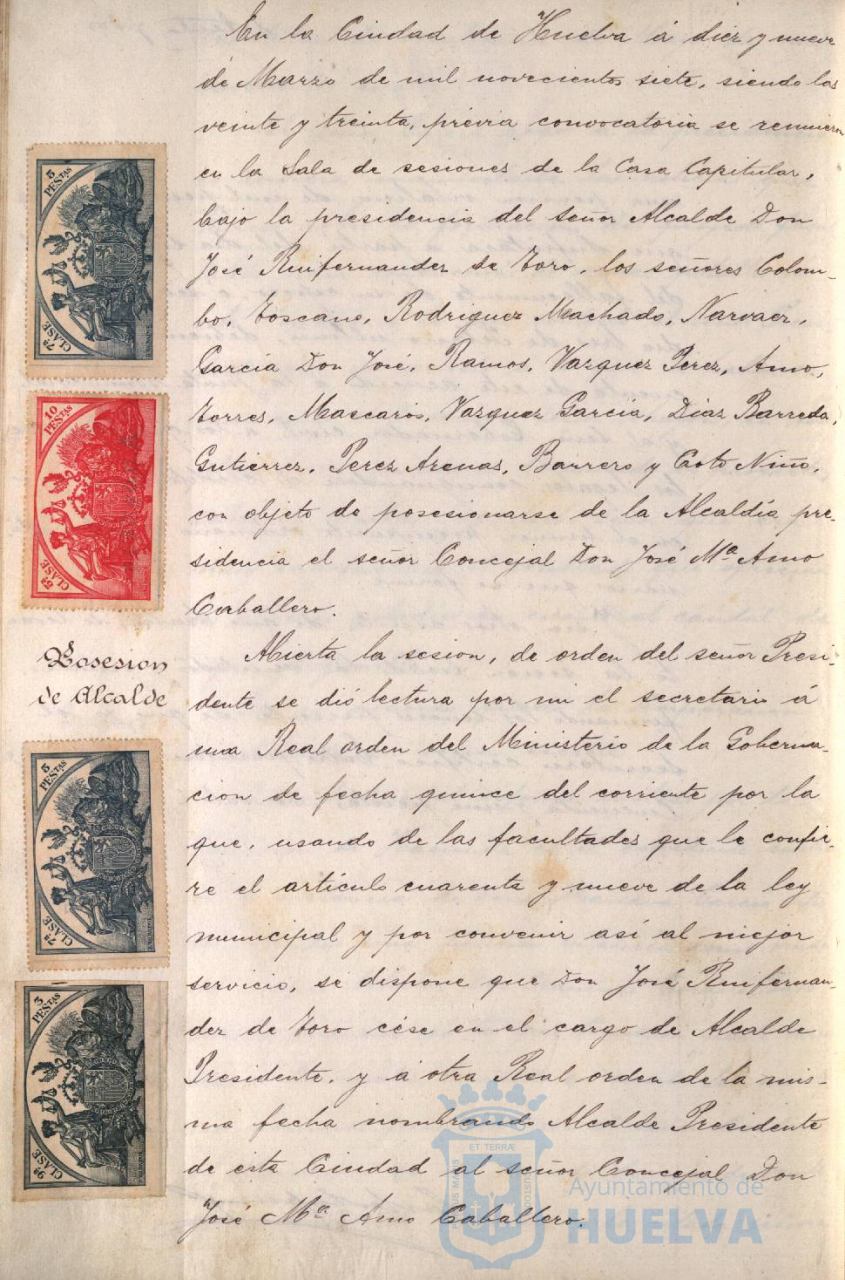 En la Ciudad de Huelva á diez y nueve
de Marzo de mil novecientos siete, siendo las
veinte y treinta, prévia convocatoria se reunieron
en la Sala de sesiones de la Casa Capitular,
bajo la presidencia del señor Alcalde Don
José Ruifernandez de Toro, los señores Colom-
bo, Toscano, Rodriguez Machado, Narvaez,
Garcia Don José, Ramos, Vazquez Perez, Amo,
Torres, Mascarós, Vazquez Garcia, Diaz Barreda,
Gutierrez, Perez Arenas, Barrero y Coto Niño,
con objeto de posesionarse de la Alcaldía pre-
sidencia el señor Concejal Don José Mª Amo
Carballero.
Abierta la sesion, de orden del señor Presi-
dente se dió lectura por mi el secretario á
una Real orden del Ministerio de la Goberna-
cion de fecha quince del corriente por la
que, usando de las facultades que le confie-
re el artículo cuarenta y nueve de la ley
municipal y por convenir así al mejor
servicio, se dispone que Don José Ruifernan-
dez de Toro cése en el cargo de Alcalde
Presidente, y á otra Real orden de la mis-
ma fecha nombrando Alcalde Presidente
de esta Ciudad al señor Concejal Don
José Mª Amo Caballero.
5 PESTAS
7ª CLASE
10 PESTAS
5ª CLASE
Posesion
de Alcalde
5 PESTAS
7ª CLASE
3 PESTAS
9ª CLASE
ET TERRÆ
Ayuntamiento de
HUELVA